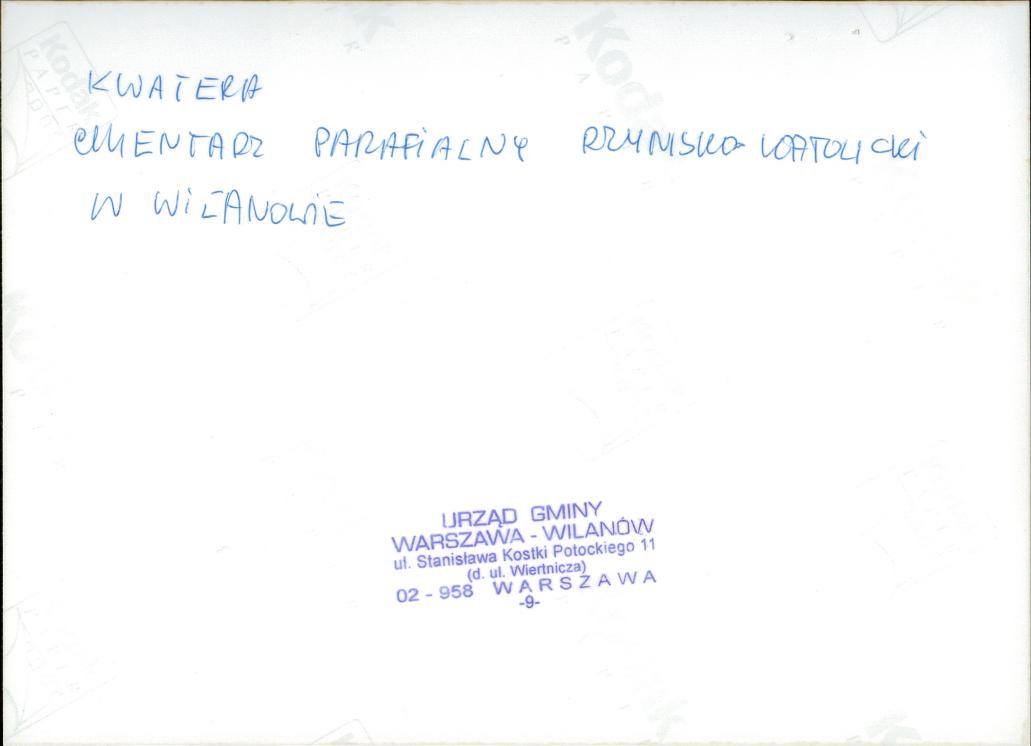 KWATERA
CMENTARZ PARAFIALNY RZYMSKO-KATOLICKI
W WILANOWIE
URZĄD GMINY
WARSZAWA - WILANÓW
ul. Stanisława Kostki Potockiego 11
(d. ul. Wiertnicza)
02 - 958 WARSZAWA
-9-
Kodak